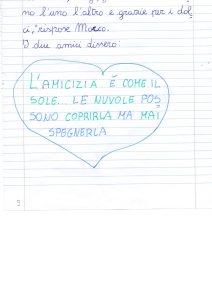 no l'uno l'altro e grazie per i dol
ci," rispose Marco.
I due amici dissero:
L'AMICIZIA È COME IL
SOLE... LE NUVOLE POS
SONO COPRIRLA MA MAI
SPEGNERLA